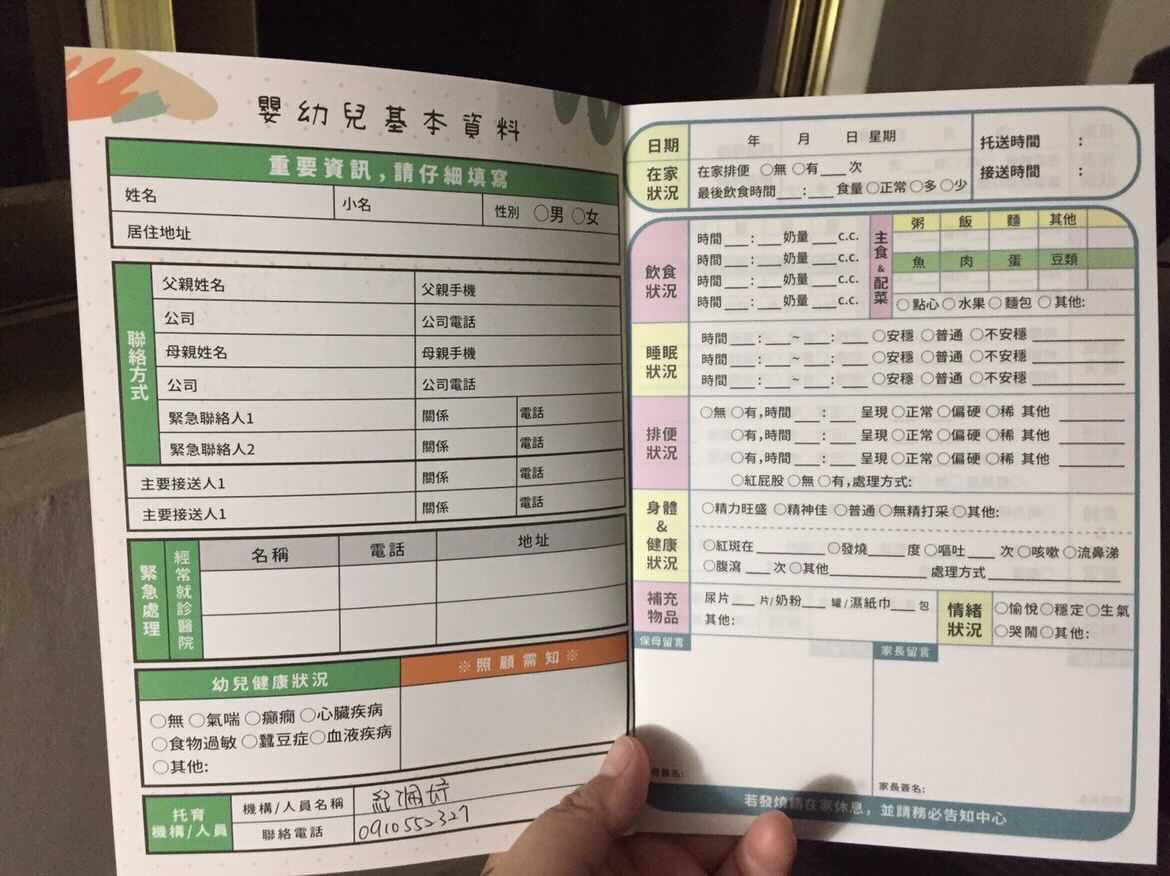 嬰幼兒基本資料
重要資訊,請仔細填寫
姓名 小名 性別 ○男 ○女
居住地址
聯絡方式
父親姓名 父親手機
公司 公司電話
母親姓名 母親手機
公司 公司電話
緊急聯絡人1 關係 電話
緊急聯絡人2 關係 電話
主要接送人1 關係 電話
主要接送人1 關係 電話
緊急處理 經常就診醫院
名稱 電話 地址
幼兒健康狀況 ※照顧需知※
○無 ○氣喘 ○癲癇 ○心臟疾病
○食物過敏 ○蠶豆症 ○血液疾病
○其他:
托育機構/人員
機構/人員名稱
聯絡電話 0910552327
日期 年 月 日 星期 托送時間 :
在家狀況 在家排便 ○無 ○有___次 接送時間 :
最後飲食時間___:___ 食量○正常○多○少
飲食狀況
時間___:___奶量___c.c.
時間___:___奶量___c.c.
時間___:___奶量___c.c.
時間___:___奶量___c.c.
主食&配菜
粥 飯 麵 其他
魚 肉 蛋 豆類
○點心○水果○麵包○其他:
睡眠狀況
時間___:___~___:___○安穩○普通○不安穩______
時間___:___~___:___○安穩○普通○不安穩______
時間___:___~___:___○安穩○普通○不安穩______
排便狀況
○無○有,時間___:___呈現○正常○偏硬○稀 其他______
○有,時間___:___呈現○正常○偏硬○稀 其他______
○有,時間___:___呈現○正常○偏硬○稀 其他______
○紅屁股○無○有,處理方式:
身體&健康狀況
○精力旺盛○精神佳○普通○無精打采○其他:
○紅斑在______○發燒____度○嘔吐___次○咳嗽○流鼻涕
○腹瀉___次○其他______處理方式______
補充物品
尿片___片/奶粉___罐/濕紙巾___包
其他:
情緒狀況
○愉悅○穩定○生氣
○哭鬧○其他:
保母留言 家長留言
簽名: 家長簽名:
若發燒請在家休息,並請務必告知中心